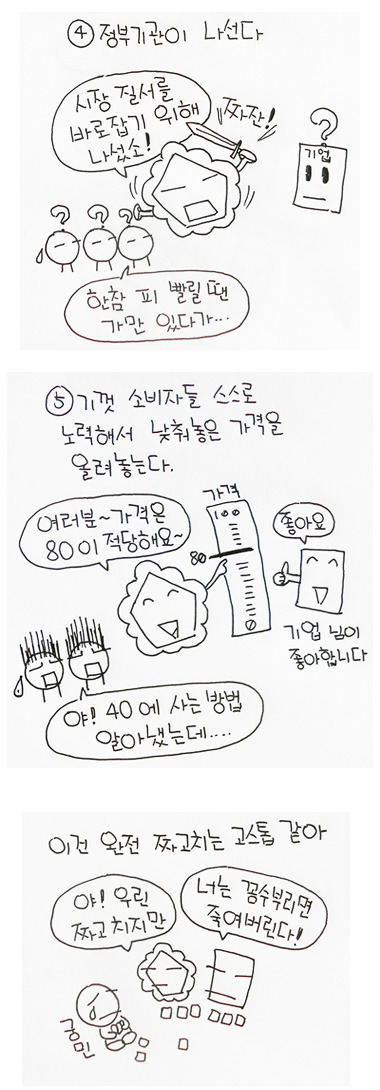 ④ 정부기관이 나선다
시장 질서를
바로잡기 위해
나섰소!
짜잔!
?
기업
? ? ?
한참 피 빨릴 땐
가만 있다가...
⑤ 기껏 소비자들 스스로
노력해서 낮춰놓은 가격을
올려놓는다.
가격
100
여러분~ 가격은
80이 적당해요~
80
좋아요
기업 님이
좋아합니다
야! 40에 사는 방법
알아냈는데....
이건 완전 짜고치는 고스톱 같아
야! 우린
짜고 치지만
너는 꼼수부리면
죽여버린다!
궁민